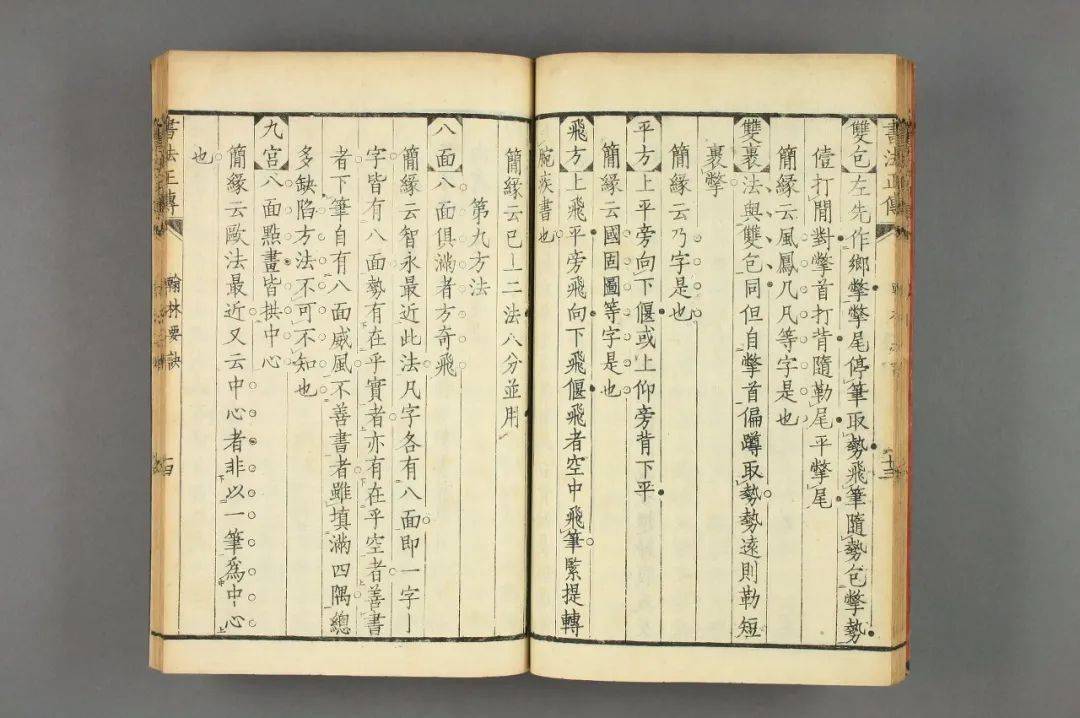 書法正傳
雙包左先作鄉撆撆尾停筆取勢飛筆隨勢包撆勢
僐打開對撆首打背隨勒尾平撆尾
簡緣云風鳳几凡等字是也
雙裹法與雙包同但自撆首偏蹲取勢勢遠則勒短
裹撆
簡緣云乃字是也
平方上平旁向下偃或上仰旁背下平
簡緣云國固圖等字是也
飛方上飛平旁飛向下飛偃飛者空中飛筆緊提轉
腕疾書也
簡緣云已上二法八分並用
第九方法
八面八面俱滿者方奇飛
簡緣云智永最近此法凡字各有八面即一字一
字皆有八面勢有在乎實者亦有在乎空者善書
者下筆自有八面威風不善書者雖填滿四隅總
多缺陷方法不可不知也
九宫八面點畫皆拱中心
簡緣云歐法最近又云中心者非以一筆爲中心
也
書法正傳
翰林要訣